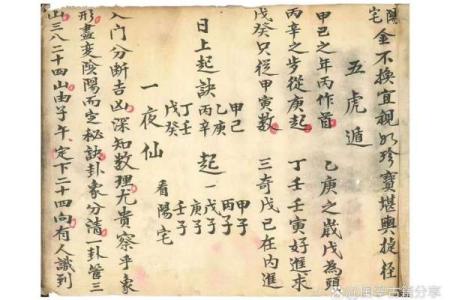 陽宅
金不換宜視如珍寶堪輿捷徑
五虎遁
甲己之年丙作首 乙庚之歲戊為頭
丙辛之步從庚起 丁壬壬寅好進求
戊癸只從甲寅數 三奇戊己在內進
日上起訣 甲己 乙庚 丙辛 丁壬 戊癸 起 甲子 丙子 戊子 庚子 壬子
一夜仙 看陽宅
入門分斷吉凶深知數理尤貴察乎象
形盡変陰陽而定秘訣卦象分清一卦管三
山三八二十四山由子午定下二十四向有人識到
古籍分享